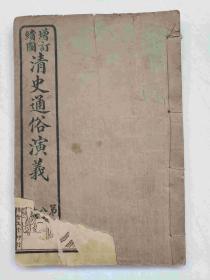 增訂
繪圖
清史通俗演義
第